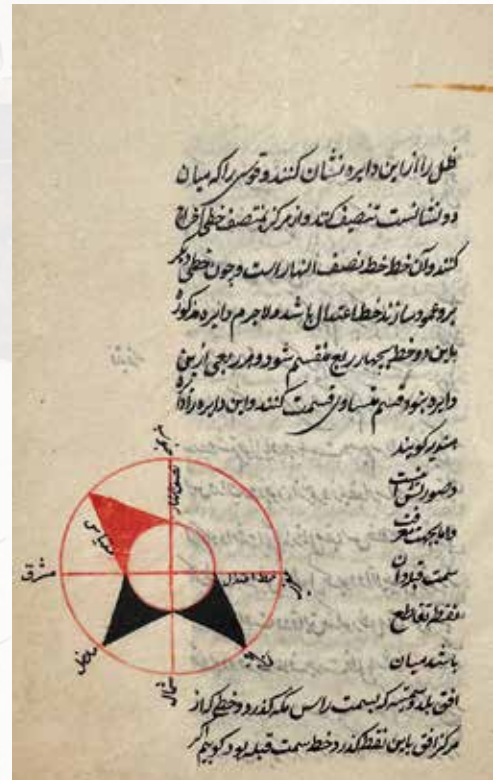 ظل را از این دایره نشان کنند و قوسی را که میان
دو نشانست تنصیف کنند و از مرکز بمنتصف خطی اخراج
کنند و آن خط خط نصف النهار است و چون خطی دیگر
برو عمود سازند خط اعتدال باشد و لاجرم دایره مذکوره
باین دو خط بچهار ربع منقسم شود و هر ربعی ازین
دایره بنود قسم متساوی قسمت کنند و این دایره را دایره
گویند
و صورتش اینست
و اما بجهت معرفت
سمت قبله دان
نقطه تقاطع
باشد میان
افق بلد و سمتیه که بسمت راس مکه گذرد و خطی که از
مرکز افق باین نقطه گذرد خط سمت قبله بود گوییم اگر
جنوب
نصف النهار
مقیاس
مشرق
خط اعتدال
مغرب
مدخل
شمال